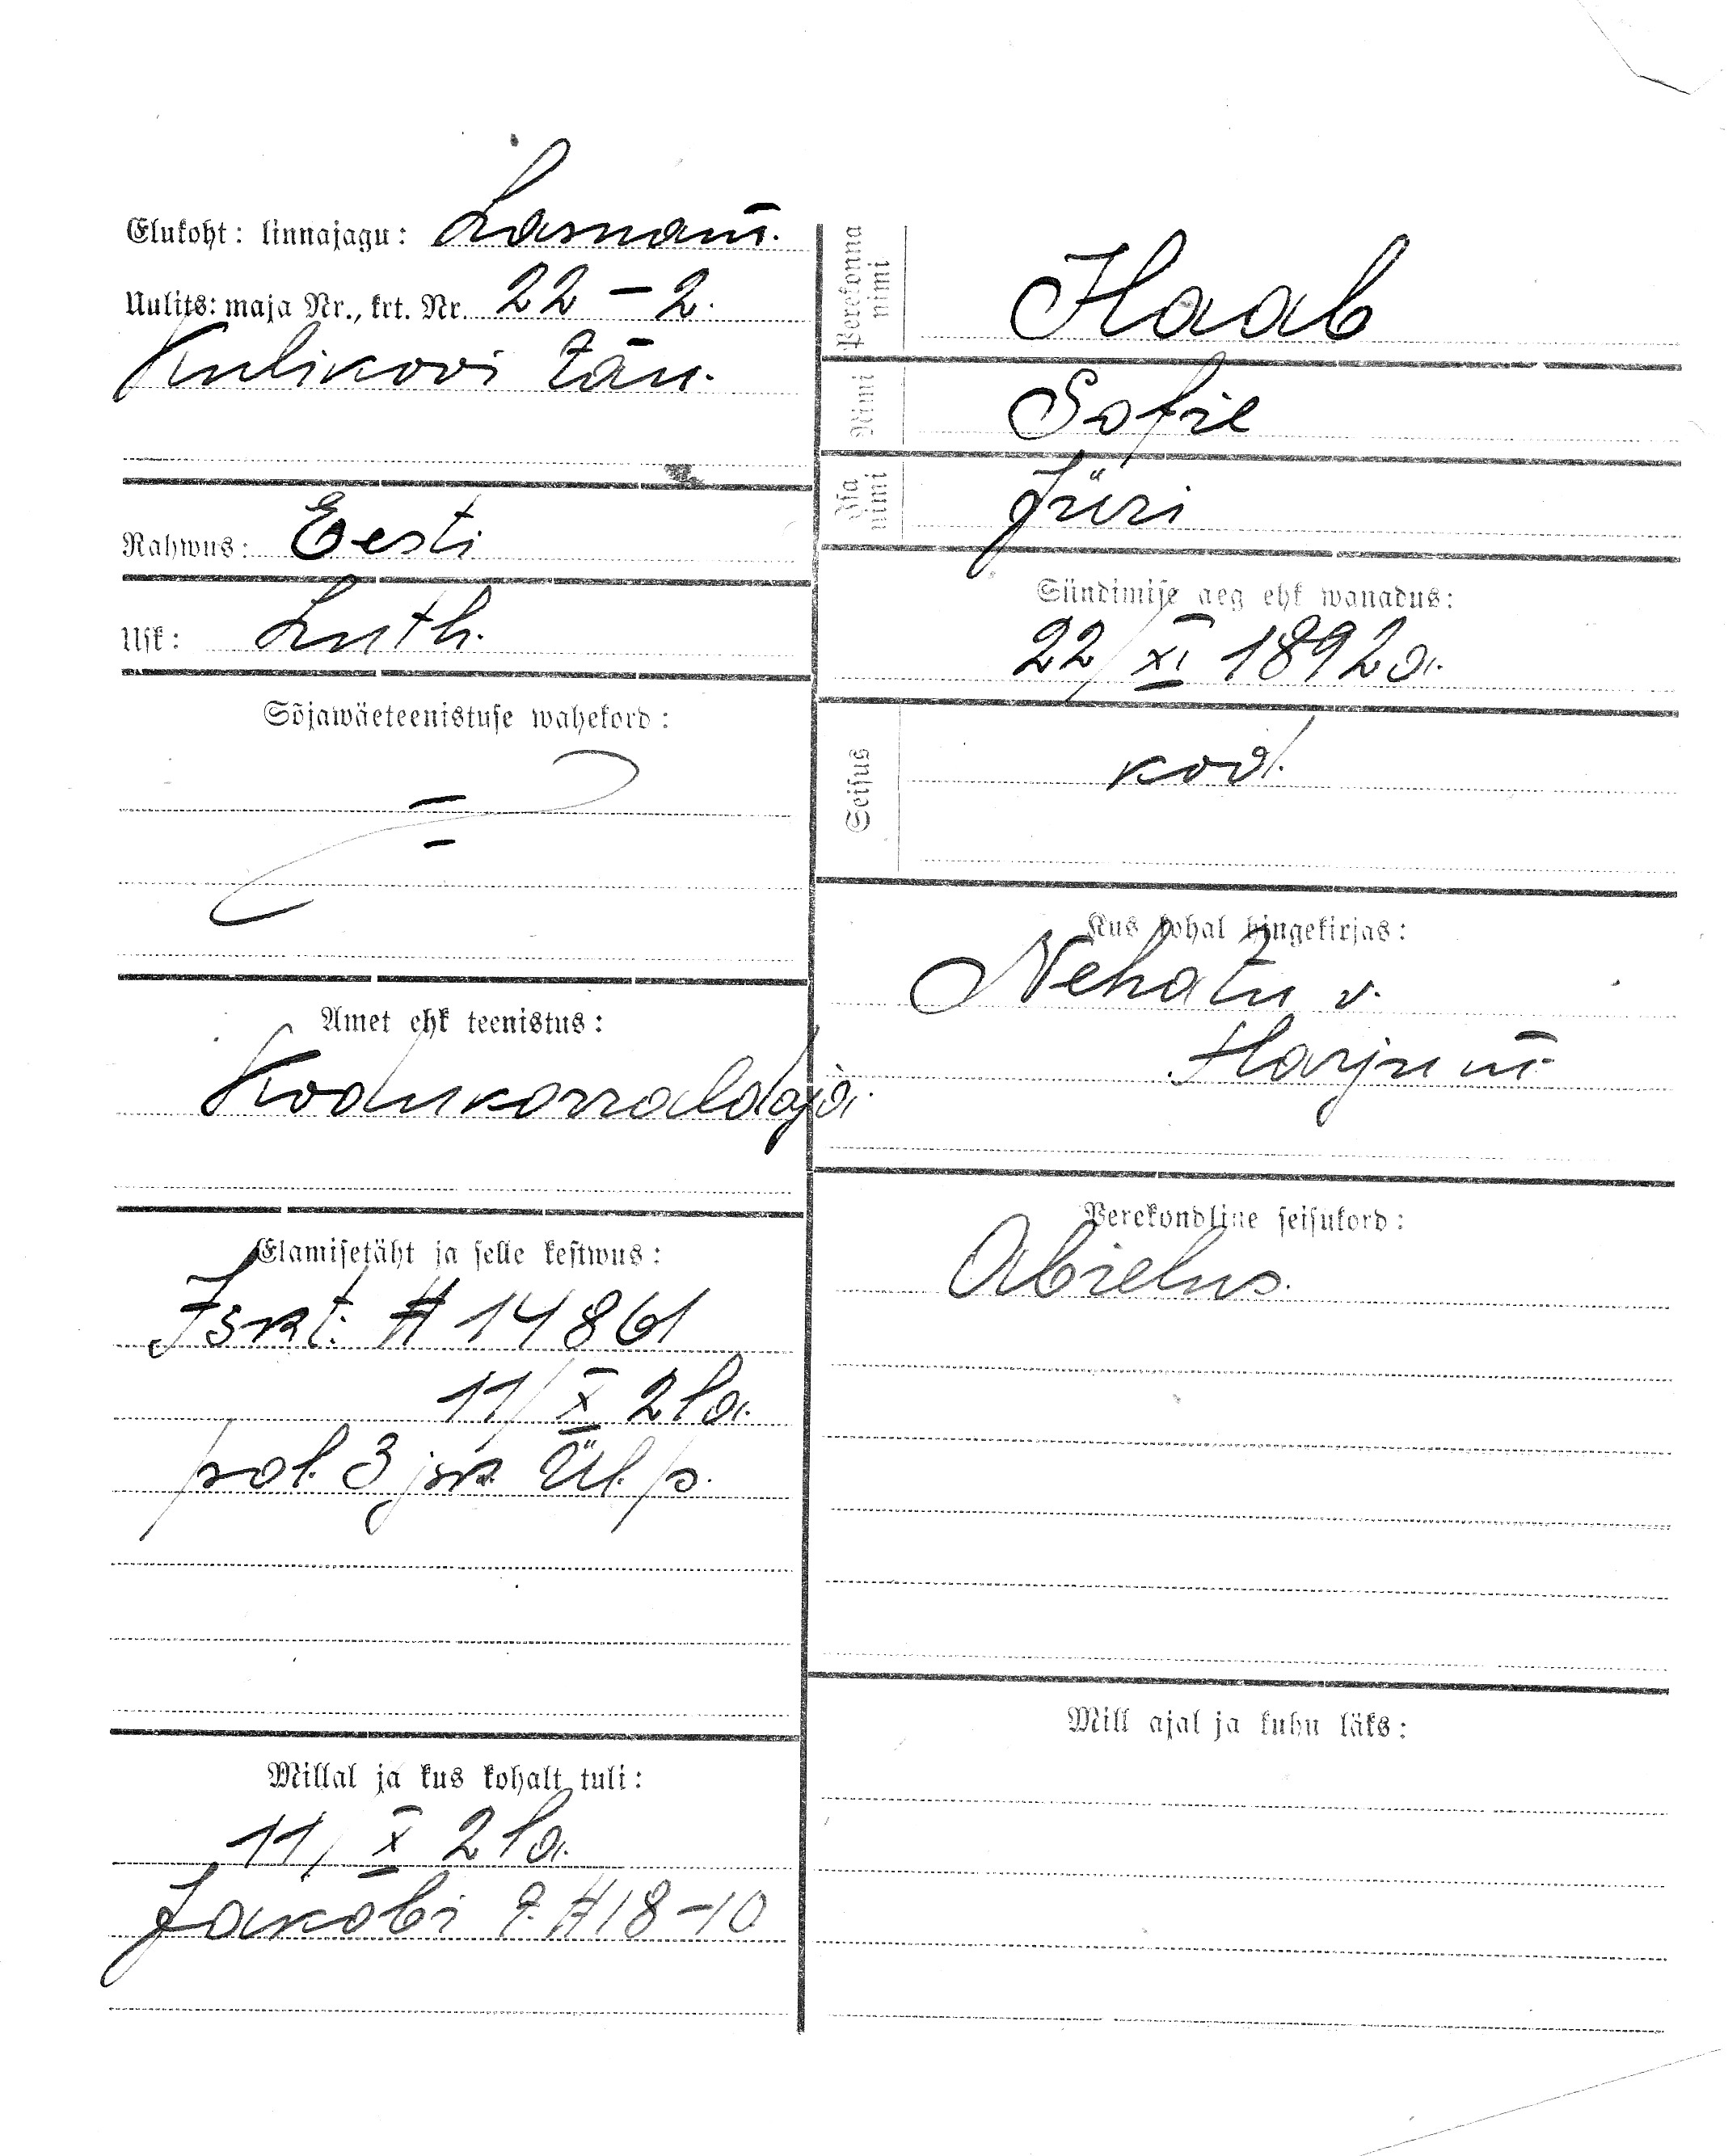 Elukoht: linnajagu: Lasnam.
Uulits: maja Nr., krt. Nr. 22 – 2.
Kulikovi tän.
Rahwus: Eesti
Usk: Luth.
Sõjawäeteenistuse wahekord:
Amet ehk teenistus:
Kodukorraldaja.
Elamisetäht ja selle kestwus:
Iskt. # 14861
11/X 21a.
pol. 3 jsk. ül. p.
Millal ja kus kohalt tuli:
11/X 21a.
Jakobi t. # 18-10
Perekonna nimi Haab
Nimi Sofie
Isa nimi Jüri
Sündimise aeg ehk wanadus:
22/XI 1892a.
Seisus kod.
Kus kohal hingekirjas:
Nehatu v.
Harju m.
Perekondline seisukord:
Abielus.
Mill ajal ja kuhu läks: